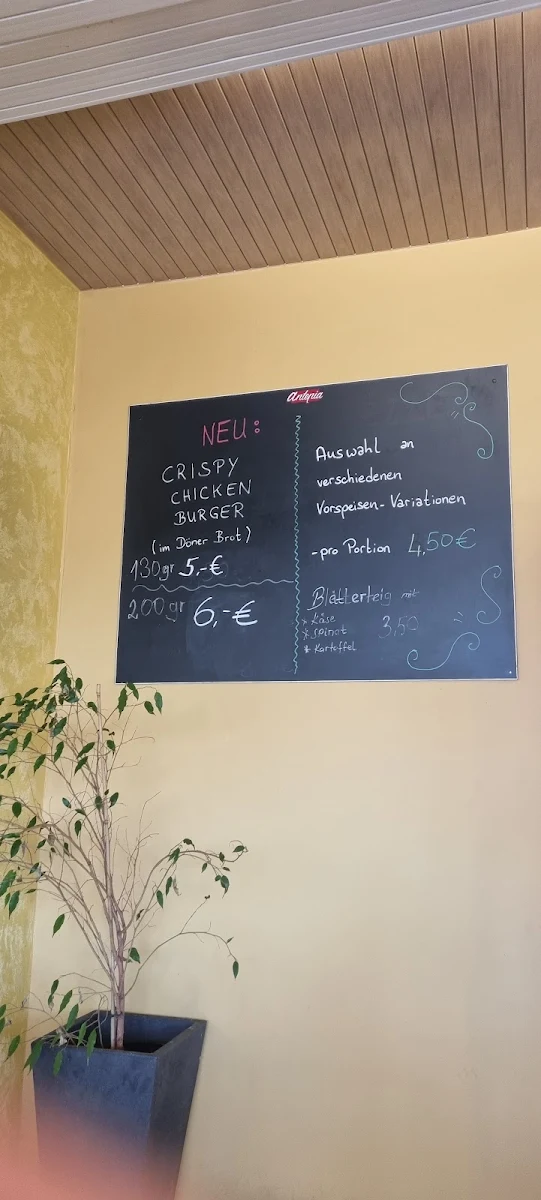 Antepia
NEU:
CRISPY
CHICKEN
BURGER
(im Döner Brot)
130gr 5,-€
200gr 6,-€
Auswahl an
verschiedenen
Vorspeisen-Variationen
-pro Portion 4,50€
Blätterteig mit
* Käse
* Spinat 3,50
* Kartoffel